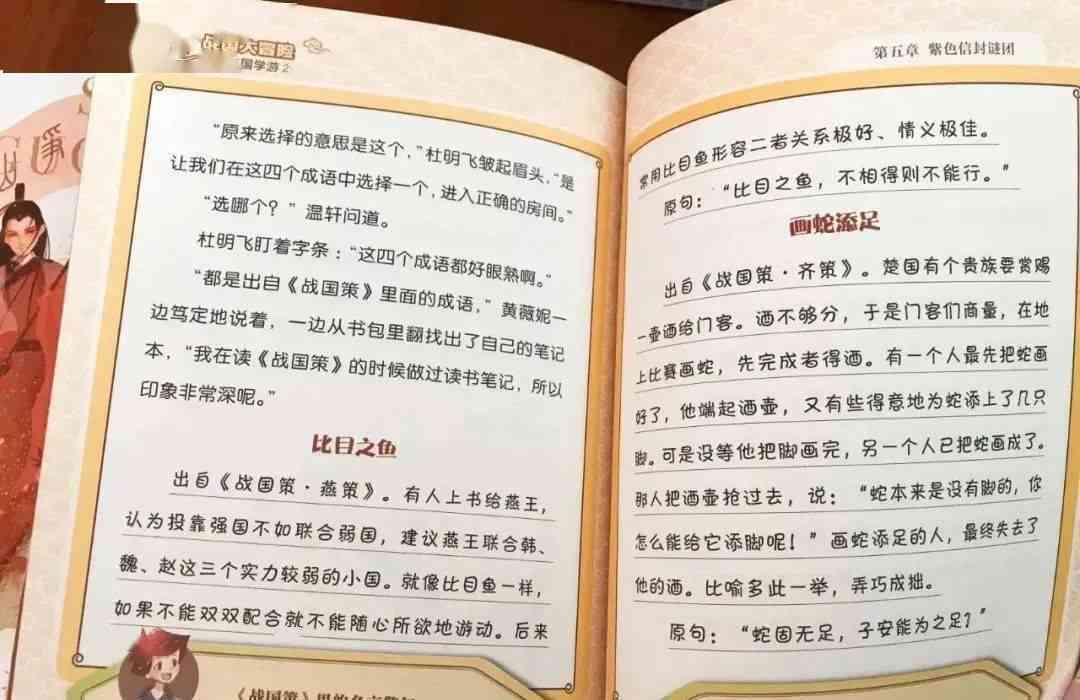 大冒险
国学游2
“原来选择的意思是这个，”杜明飞皱起眉头，“是
让我们在这四个成语中选择一个，进入正确的房间。”
“选哪个？”温轩问道。
杜明飞盯着字条：“这四个成语都好眼熟啊。”
“都是出自《战国策》里面的成语，”黄薇妮一
边笃定地说着，一边从书包里翻找出了自己的笔记
本，“我在读《战国策》的时候做过读书笔记，所以
印象非常深呢。”
比目之鱼
出自《战国策·燕策》。有人上书给燕王，
认为投靠强国不如联合弱国，建议燕王联合韩、
魏、赵这三个实力较弱的小国。就像比目鱼一样，
如果不能双双配合就不能随心所欲地游动。后来
《战国策》里的名言警句
第五章 紫色信封谜团
常用比目鱼形容二者关系极好、情义极佳。
原句：“比目之鱼，不相得则不能行。”
画蛇添足
出自《战国策·齐策》。楚国有个贵族要赏赐
一壶酒给门客。酒不够分，于是门客们商量，在地
上比赛画蛇，先完成者得酒。有一个人最先把蛇画
好了，他端起酒壶，又有些得意地为蛇添上了几只
脚。可是没等他把脚画完，另一个人已把蛇画成了。
那人把酒壶抢过去，说：“蛇本来是没有脚的，你
怎么能给它添脚呢！”画蛇添足的人，最终失去了
他的酒。比喻多此一举，弄巧成拙。
原句：“蛇固无足，子安能为之足？”